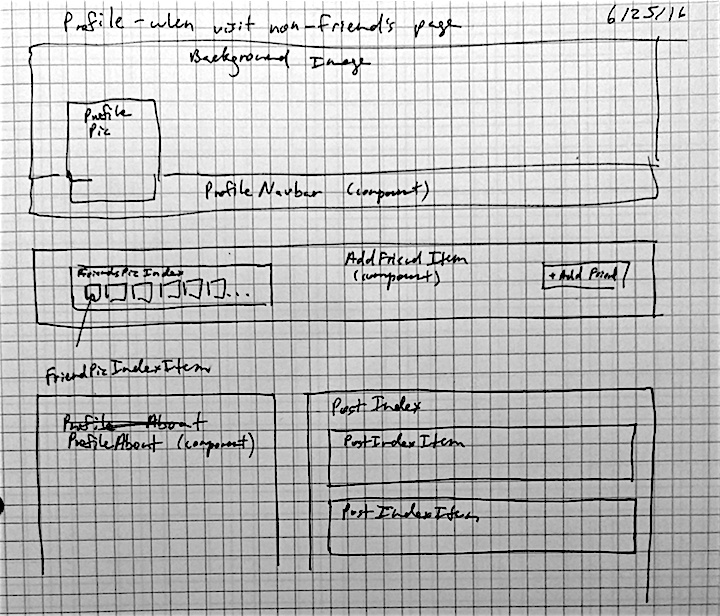 Profile - when visit non-friend's page
6/25/16
Background Image
Profile
Pic
ProfileNavbar (component)
FriendsPicIndex
AddFriendItem
(component)
+ Add Friend
...
FriendPicIndexItem
Profile About
ProfileAbout (component)
PostIndex
PostIndexItem
PostIndexItem